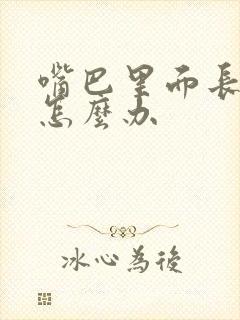 嘴巴里面長
怎麼办
冰心為後